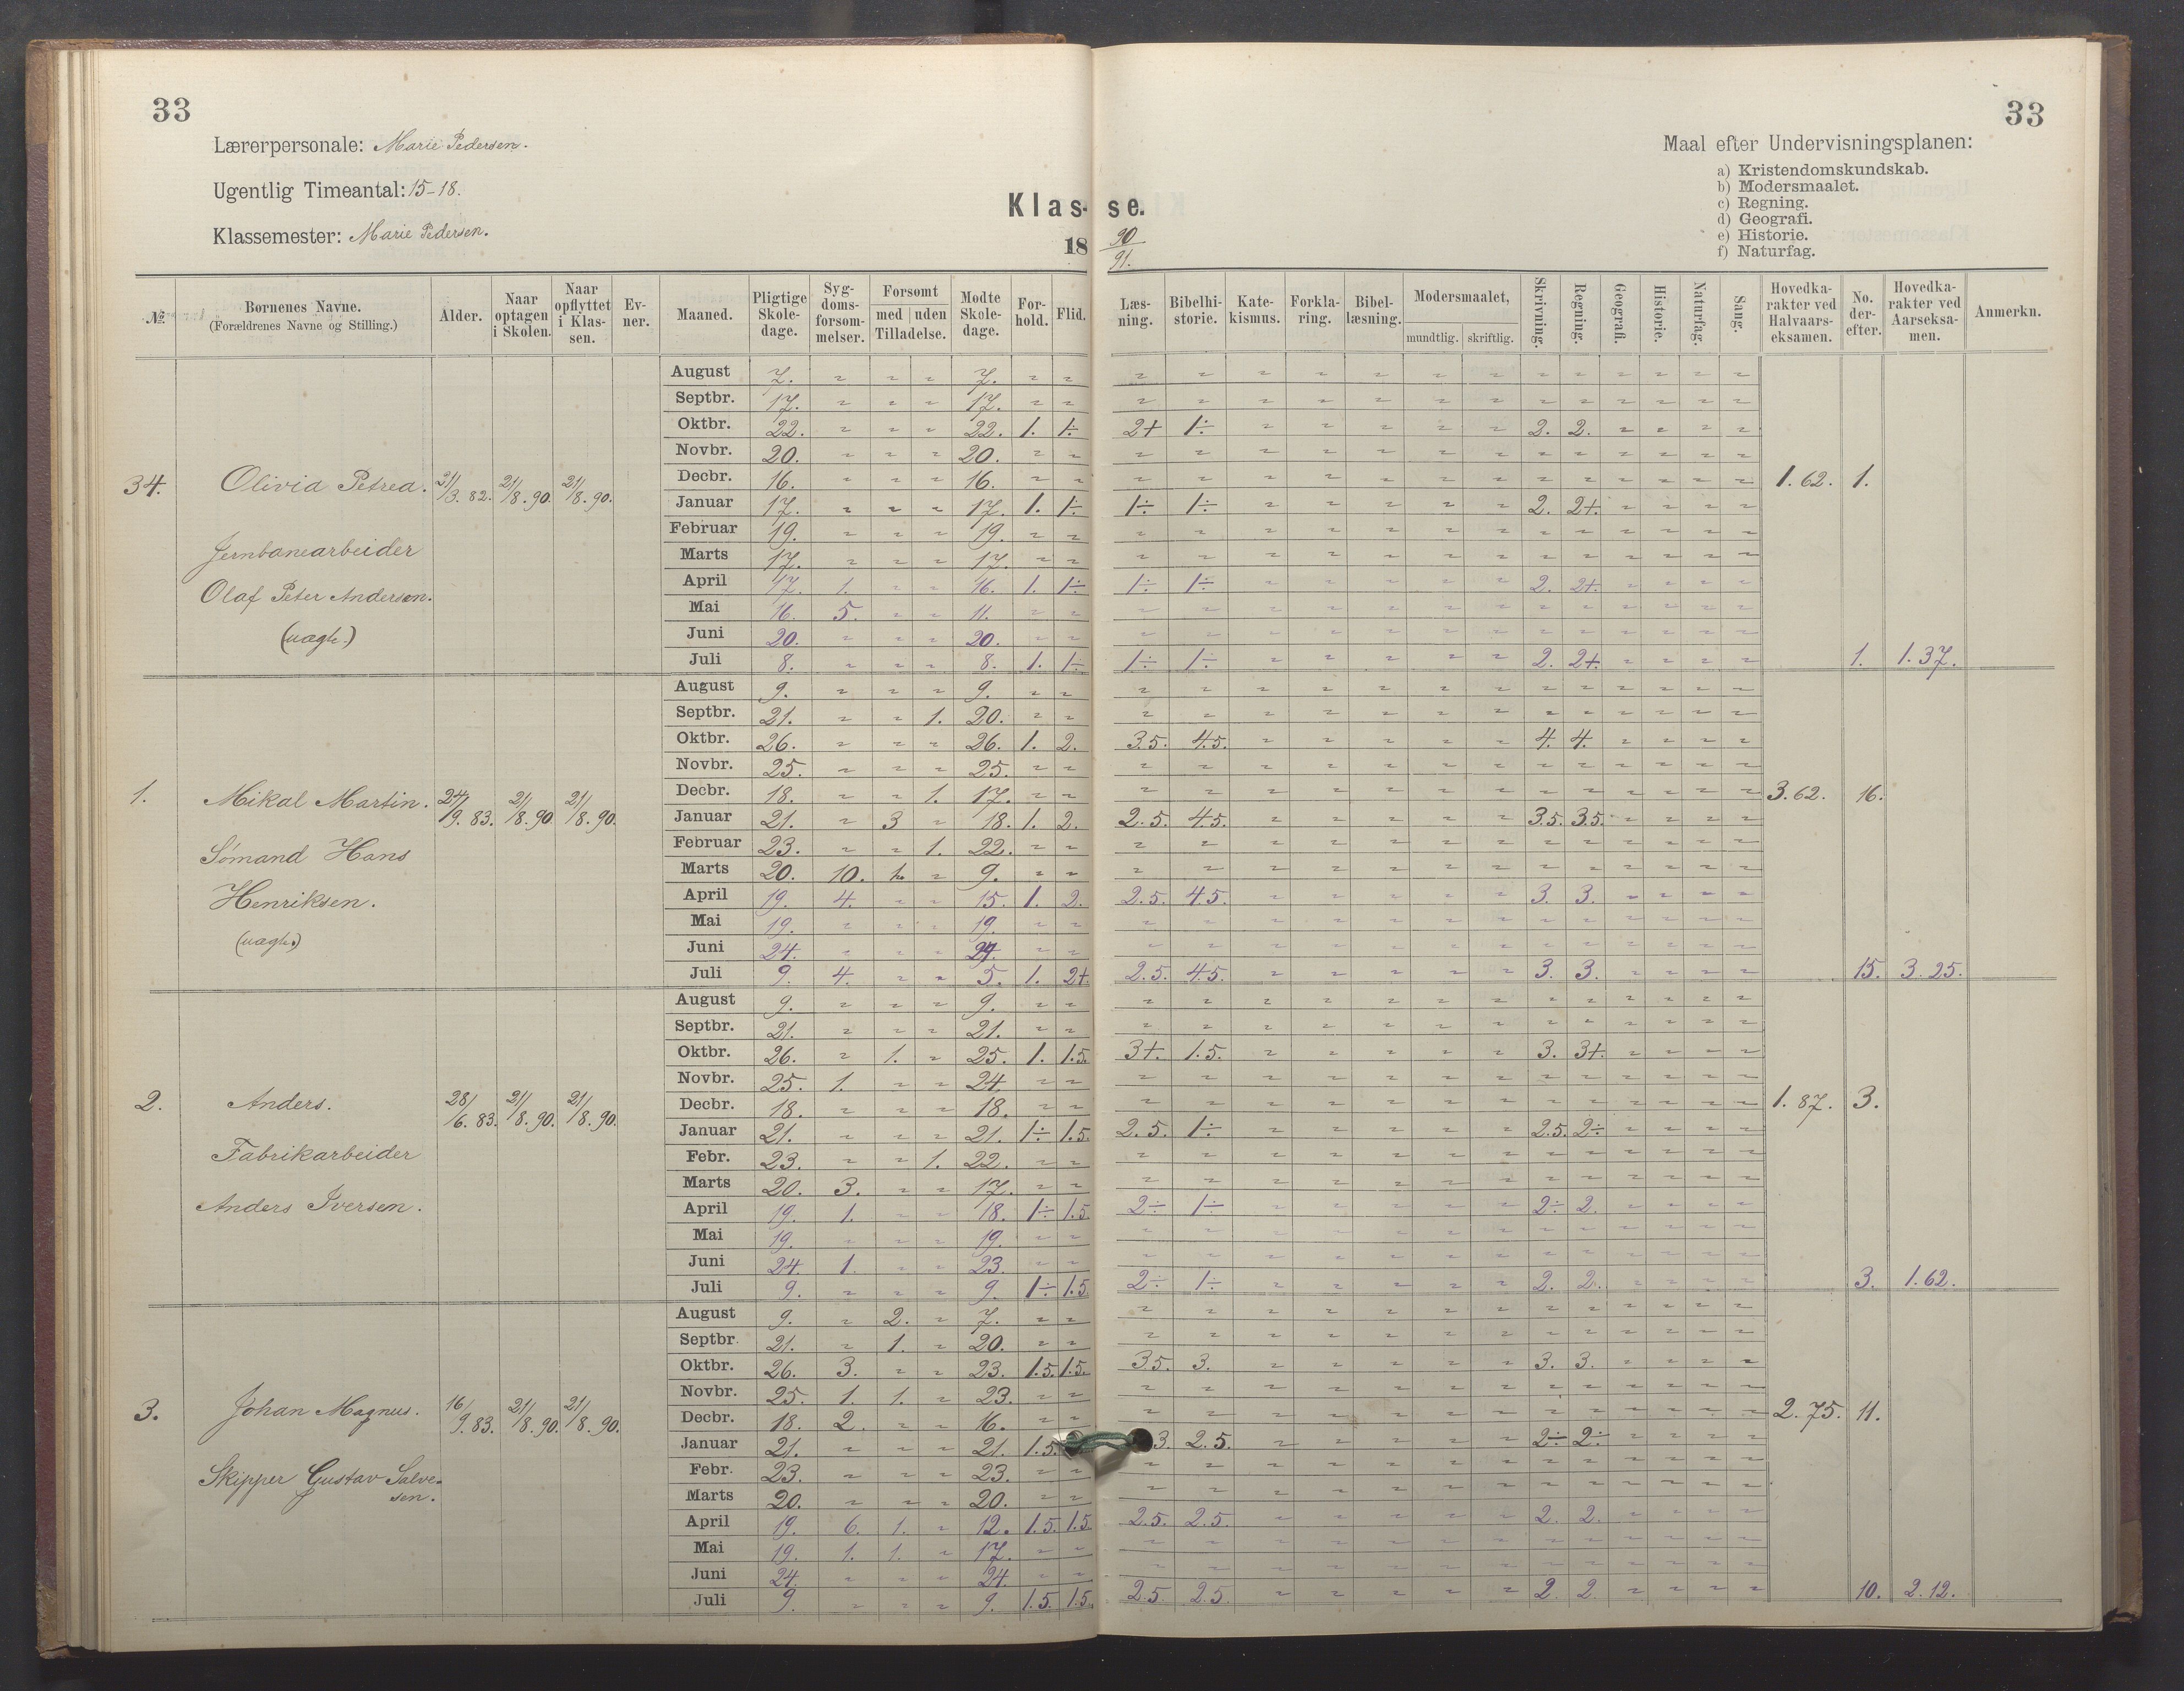 33
33
Lærerpersonale: Marie Pedersen.
Ugentlig Timeantal: 15-18.
Klassemester: Marie Pedersen.
Klas- se.
18 90/91.
Maal efter Undervisningsplanen:
a) Kristendomskundskab.
b) Modersmaalet.
c) Regning.
d) Geografi.
e) Historie.
f) Naturfag.
№ | Børnenes Navne. (Forældrenes Navne og Stilling.) | Alder. | Naar optagen i Skolen. | Naar opflyttet i Klassen. | Evner. | Maaned. | Pligtige Skoledage. | Sygdomsforsommelser. | Forsømt med / uden Tilladelse. | Mødte Skoledage. | Forhold. | Flid. | Læsning. | Bibelhistorie. | Katekismus. | Forklaring. | Bibellæsning. | Modersmaalet, mundtlig. skriftlig. | Skrivning. | Regning. | Geografi. | Historie. | Naturfag. | Sang. | Hovedkarakter ved Halvaarseksamen. | No. derefter. | Hovedkarakter ved Aarseksamen. | Anmerkn.
34. Olivia Petrea. 21/3. 82. 21/8. 90. 21/8. 90.
Jernbanearbeider
Olaf Peter Andersen.
(uægte.)
August 7. " " " 7. " "
Septbr. 17. " " " 17. " "
Oktbr. 22. " " " 22. 1. 1÷ 2+ 1÷ 2. 2.
Novbr. 20. " " " 20. " "
Decbr. 16. " " " 16. " " 1.62. 1.
Januar 17. " " " 17. 1. 1÷ 1÷ 1÷ 2. 2+.
Februar 19. " " " 19. " "
Marts 17. " " " 17. " "
April 17. 1. " " 16. 1. 1÷ 1÷ 1÷ 2. 2+.
Mai 16. 5. " " 11. " "
Juni 20. " " " 20. " "
Juli 8. " " " 8. 1. 1÷ 1÷ 1÷ 2. 2+. 1. 1.37.
1. Mikal Martin. 24/9. 83. 21/8. 90. 21/8. 90.
Sømand Hans
Henriksen.
(uægte)
August 9. " " " 9. " "
Septbr. 21. " " 1. 20. " "
Oktbr. 26. " " " 26. 1. 2. 3.5. 4.5. 4. 4.
Novbr. 25. " " " 25. " "
Decbr. 18. " " 1. 17. " " 3.62. 16.
Januar 21. " 3 " 18. 1. 2. 2.5. 4.5. 3.5. 3.5.
Februar 23. " " 1. 22. " "
Marts 20. 10. 1. " 9. " "
April 19. 4. " " 15. 1. 2. 2.5. 4.5. 3. 3.
Mai 19. " " " 19. " "
Juni 24. " " " 24. " "
Juli 9. 4. " " 5. 1. 2+. 2.5. 4.5. 3. 3. 15. 3.25.
2. Anders. 28/6. 83. 21/8. 90. 21/8. 90.
Fabrikarbeider
Anders Iversen.
August 9. " " " 9. " "
Septbr. 21. " " " 21. " "
Oktbr. 26. " 1. " 25. 1. 1.5. 3+. 1.5. 3. 3+.
Novbr. 25. 1. " " 24. " "
Decbr. 18. " " " 18. " " 1.87. 3.
Januar 21. " " " 21. 1÷ 1.5. 2.5. 1÷ 2.5. 2÷
Febr. 23. " " 1. 22. " "
Marts 20. 3. " " 17. " "
April 19. 1. " " 18. 1÷ 1.5. 2÷ 1÷ 2÷ 2.
Mai 19. " " " 19. " "
Juni 24. 1. " " 23. " "
Juli 9. " " " 9. 1÷ 1.5. 2÷ 1÷ 2. 2. 3. 1.62.
3. Johan Magnus. 16/9. 83. 21/8. 90. 21/8. 90.
Skipper Gustav Salve-
sen.
August 9. " 2. " 7. " "
Septbr. 21. " 1. " 20. " "
Oktbr. 26. 3. " " 23. 1.5. 1.5. 3.5. 3. 3. 3.
Novbr. 25. 1. 1. " 23. " "
Decbr. 18. 2. " " 16. " " 2.75. 11.
Januar 21. " " " 21. 1.5. 3. 2.5. 2÷ 2÷
Febr. 23. " " " 23. " "
Marts 20. " " " 20. " "
April 19. 6. 1. " 12. 1.5. 1.5. 2.5. 2.5. 2. 2.
Mai 19. 1. 1. " 17. " "
Juni 24. " " " 24. " "
Juli 9. " " " 9. 1.5. 1.5. 2.5. 2.5. 2. 2. 10. 2.12.